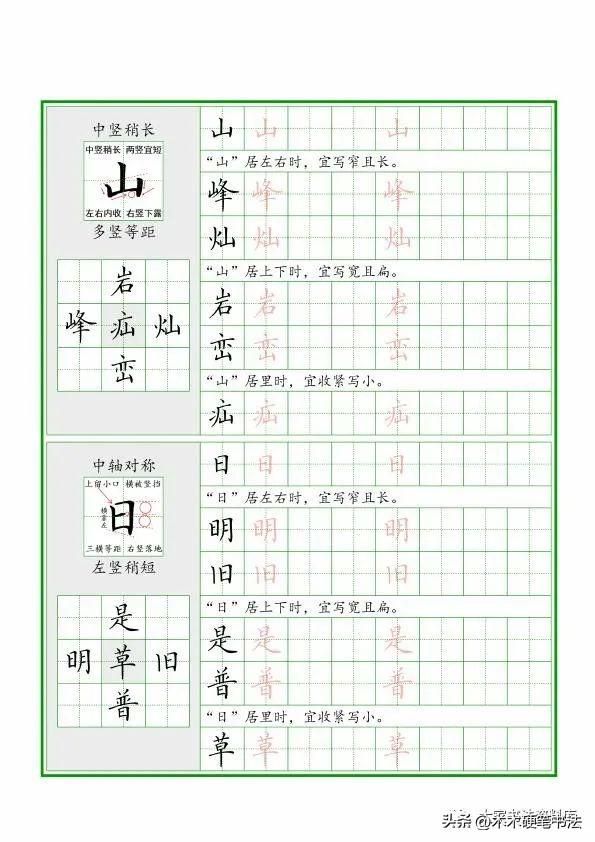 中竖稍长
中竖稍长 两竖宜短
山
左右内收 右竖下露
多竖等距
岩
峰 疝 灿
峦
山 山 山
“山”居左右时，宜写窄且长。
峰 峰 峰
灿 灿 灿
“山”居上下时，宜写宽且扁。
岩 岩 岩
峦 峦 峦
“山”居里时，宜收紧写小。
疝 疝 疝
中轴对称
上留小口 横被竖挡
横靠左
日
三横等距 右竖落地
左竖稍短
是
明 草 旧
普
日 日 日
“日”居左右时，宜写窄且长。
明 明 明
旧 旧 旧
“日”居上下时，宜写宽且扁。
是 是 是
普 普 普
“日”居里时，宜收紧写小。
草 草 草
头条 @木木硬笔书法